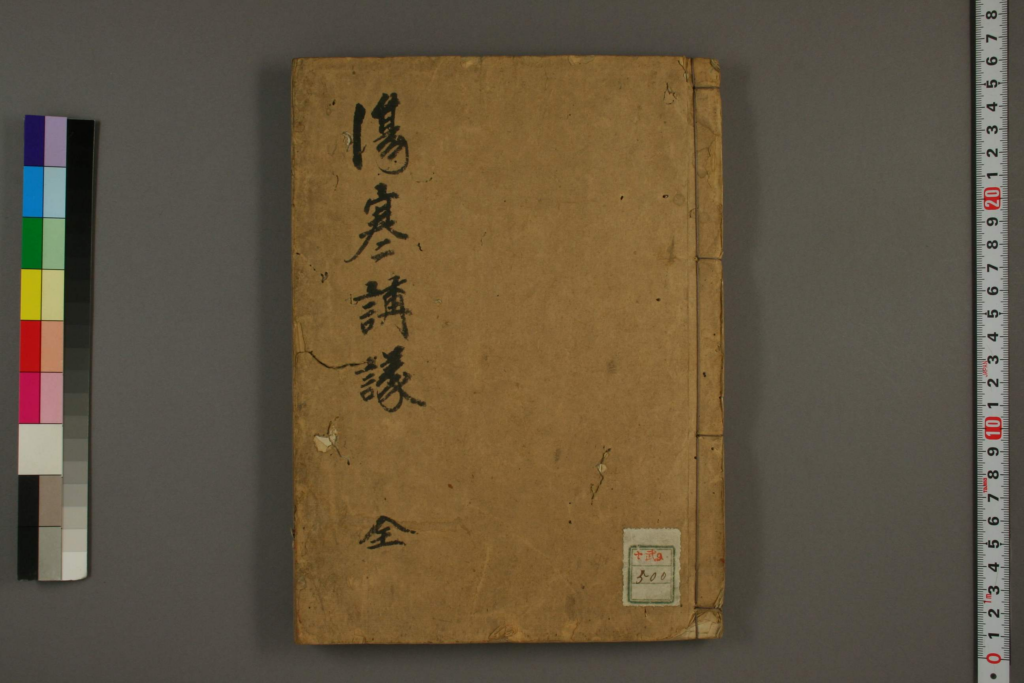 傷寒講義
全
500
8
7
6
5
4
3
2
1
20
9
8
7
6
5
4
3
2
1
10
9
8
7
6
5
4
3
2
1
0